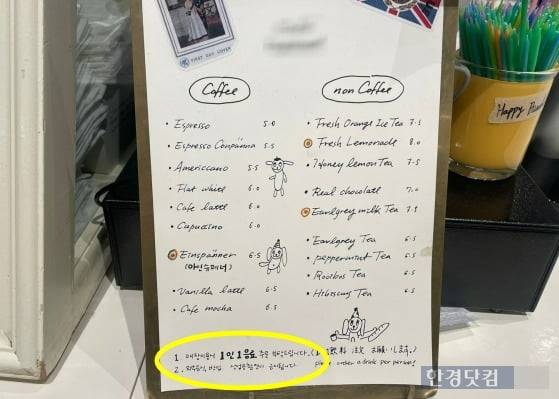 Coffee
Espresso 5.0
Espresso Conpanna 5.5
Americcano 5.5
Flat white 6.0
Cafe latte 6.0
Capuccino 6.0
Einspänner 6.5
(아인슈페너)
Vanilla latte 6.5
Cafe mocha 6.5
non Coffee
Fresh Orange Ice Tea 7.5
Fresh Lemonade 8.0
Honey lemon Tea 7.5
Real chocolate 7.0
Earlgrey milk Tea 7.5
Earlgrey Tea 6.5
peppermint Tea 6.5
Rooibos Tea 6.5
Hibiscus Tea 6.5
1. 매장이용시 1인 1음료 주문 부탁드립니다.
2. 외부음식, 반입
飲料 注文 お願いします。
please order a drink per person
Happy
한경닷컴